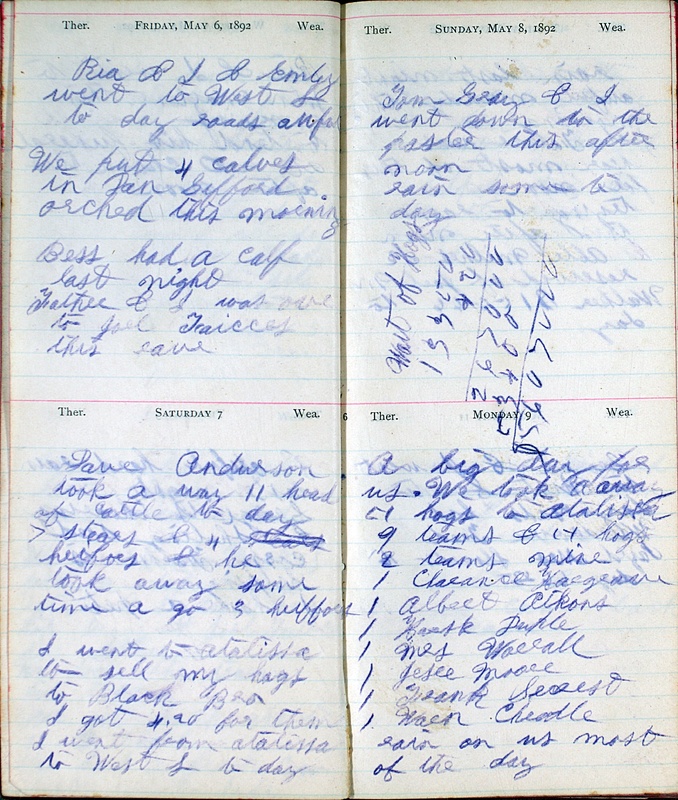 Ther. FRIDAY, MAY 6, 1892 Wea.
Ria & I & Emly
went to West L
to day roads awful
We put 4 calves
in Jan Gifford
orched this morning
Bess had a calf
last night
Father & I was
to Joel
this eave
Ther. SATURDAY 7 Wea.
Anderson
took a way 11 head
of cattle to day
7 stears & 4
heifoes & he
took away some
time a go 3 heiffoes
I went to atalissa
to sell my hogs
to Black Bro
I got 4.20 for them
I went from atalissa
to West L to day
Ther. SUNDAY, MAY 8, 1892 Wea.
Tom Gray & I
went down to the
paster this after
noon
rain some to
day
Wait of Hogs
6 Ther. MONDAY 9 Wea.
A big day for
us. We took away
51 hogs to atalissa
9 teams & 51 hogs
2 teams mine
1 Clarance
1 Albert Atkons
1
1 Mrs Worrall
1 Jesee Mooee
1 Frank Secrest
1 Cheadle
rain on us most
of the day